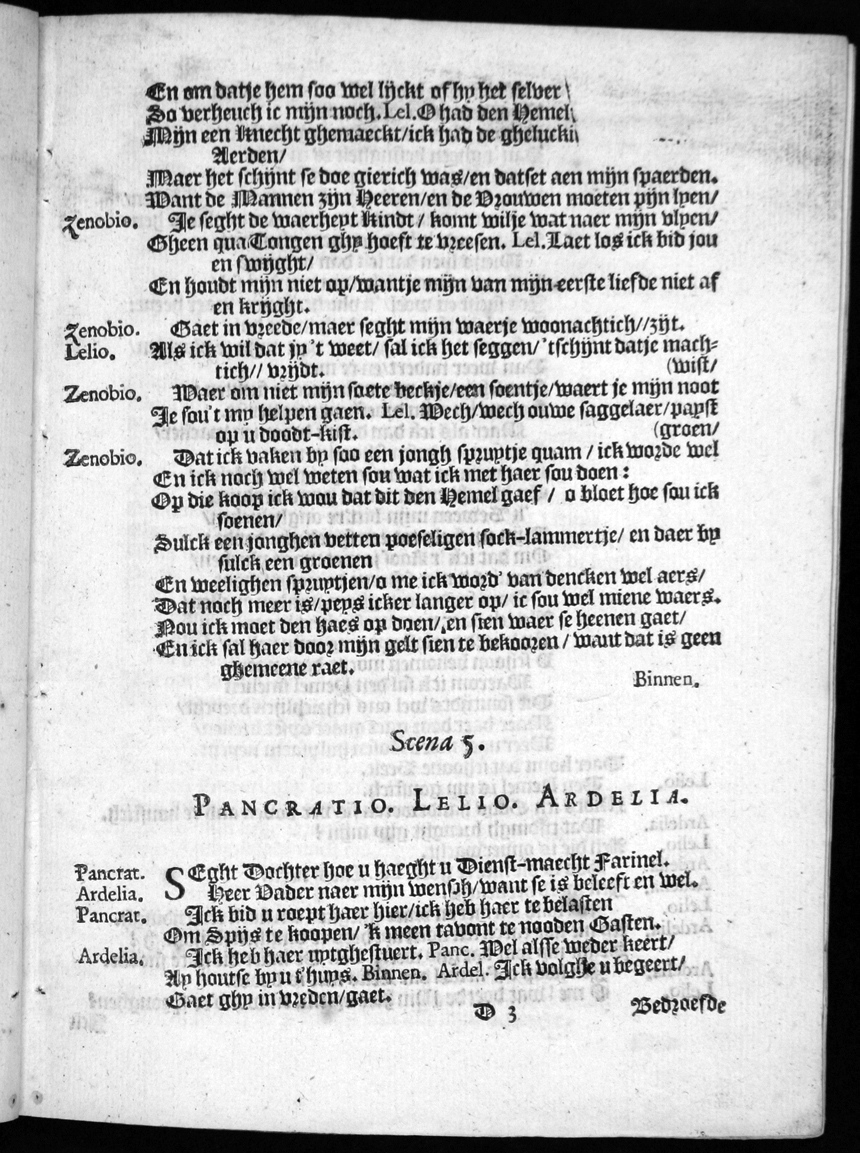 En om datje hem soo wel lijckt of hy het selver
So verheuch ic mijn noch. Lel. O had den Hemel
Mijn een Knecht ghemaeckt/ick had de ghelucki
Aerden/
Maer het schijnt se doe gierich was/en datset aen mijn spaerden.
Want de Mannen zijn Heeren/en de Vrouwen moeten pijn lyen/
Zenobio. Je seght de waerheyt Kindt / komt wilje wat naer mijn vlyen/
Gheen qua Tongen ghy hoeft te vreesen. Lel. Laet los ick bid jou
en swijght/
En houdt mijn niet op/wantje mijn van mijn eerste liefde niet af
en krijght.
Zenobio. Gaet in vreede/maer seght mijn waerje woonachtich//zijt.
Lelio. Als ick wil dat jy 't weet/ sal ick het seggen/ 'tschijnt datje mach-
tich// vrijdt. (wist/
Zenobio. Waer om niet mijn soete beckje/een soentje/waert je mijn noot
Je sou't my helpen gaen. Lel. Wech/wech ouwe saggelaer/payst
op u doodt-kist. (groen/
Zenobio. Dat ick vaken by soo een jongh spruytje quam / ick worde wel
En ick noch wel weten sou wat ick met haer sou doen:
Op die koop ick wou dat dit den Hemel gaef / o bloet hoe sou ick
soenen/
Sulck een jonghen vetten poeseligen sock-lammertje/ en daer by
sulck een groenen
En weelighen spruytjen/o me ick word' van dencken wel aers/
Dat noch meer is/peys icker langer op/ ic sou wel miene waers.
Nou ick moet den haes op doen/ en sien waer se heenen gaet/
En ick sal haer door mijn gelt sien te bekooren / want dat is geen
ghemeene raet.
Binnen.
Scena 5.
PANCRATIO. LELIO. ARDELIA.
Pancrat. SEght Dochter hoe u haeght u Dienst-maecht Farinel.
Ardelia. Heer Vader naer mijn wensch/want se is beleeft en wel.
Pancrat. Ick bid u roept haer hier/ick heb haer te belasten
Om Spijs te koopen/ 'k meen tavont te nooden Gasten.
Ardelia. Ick heb haer uytghestuert. Panc. Wel alsse weder keert/
Ay houtse by u t'huys. Binnen. Ardel. Ick volghe u begeert/
Gaet ghy in vreden/gaet.
D 3 Bedroefde